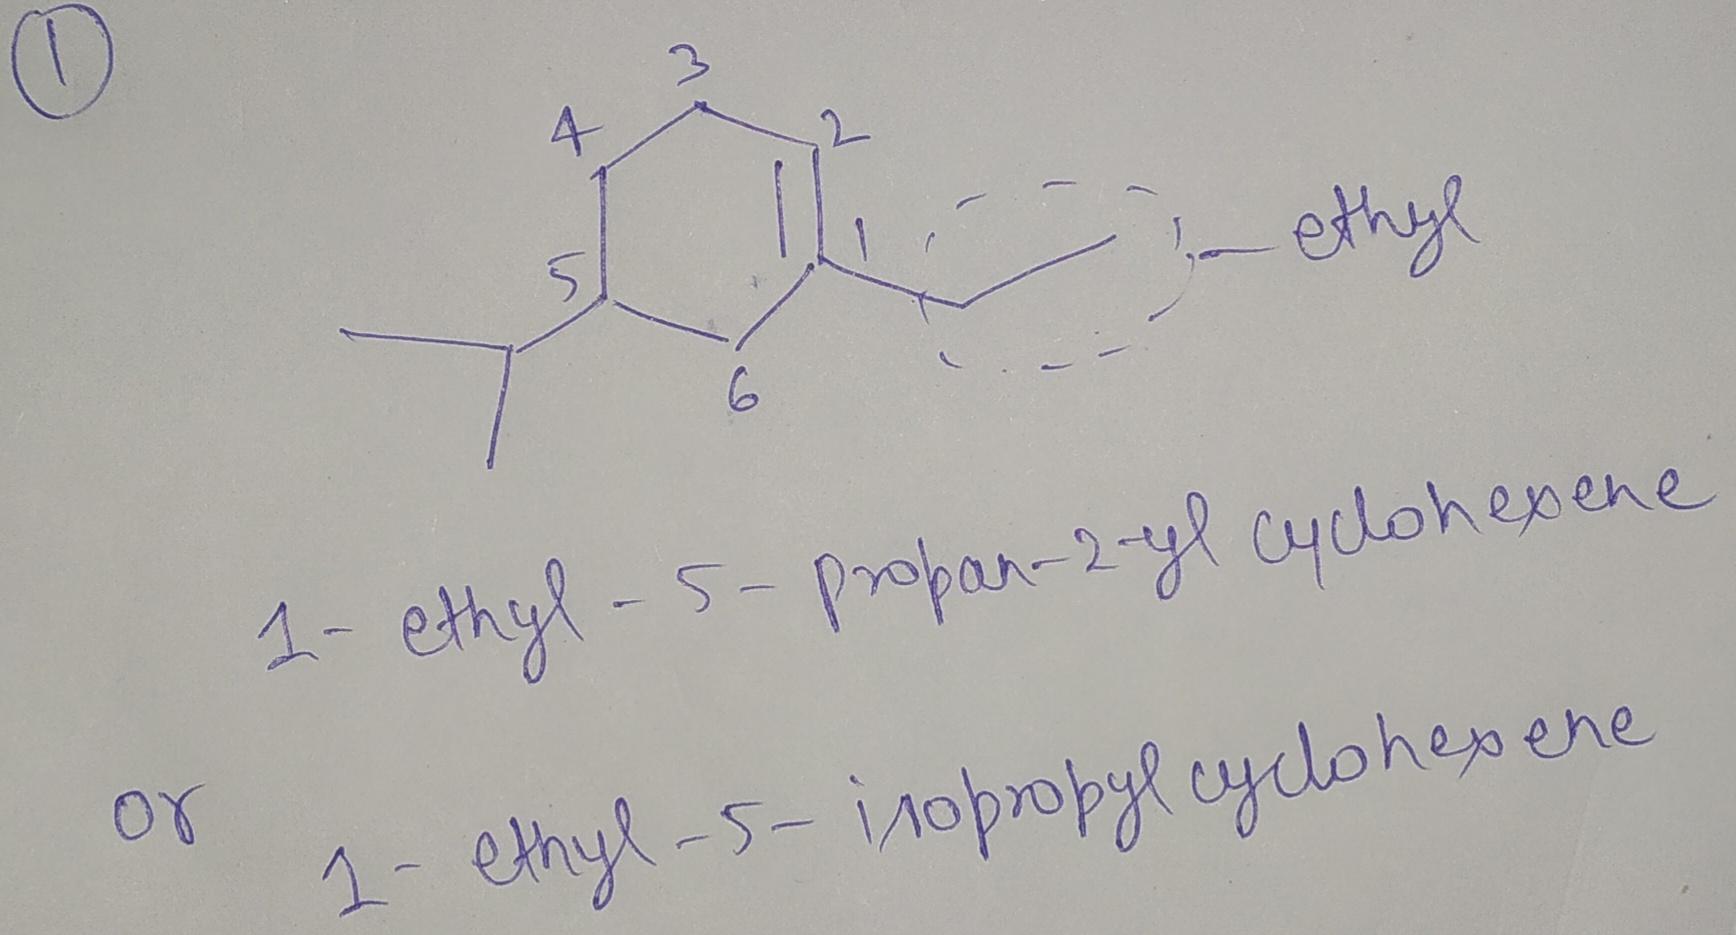 1
3
4
2
1
ethyl
5
6
1-ethyl-5-propan-2-yl cyclohexene
or
1-ethyl-5-isopropyl cyclohexene